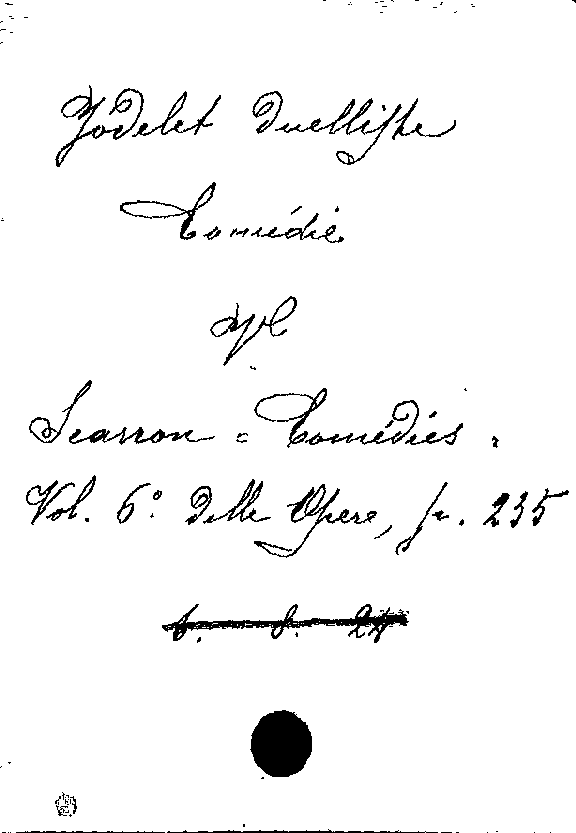 Jodelet Duelliste
Comédie
Scarron = Comédies.
Vol. 6º delle Opere, p. 235
6. 8. 24